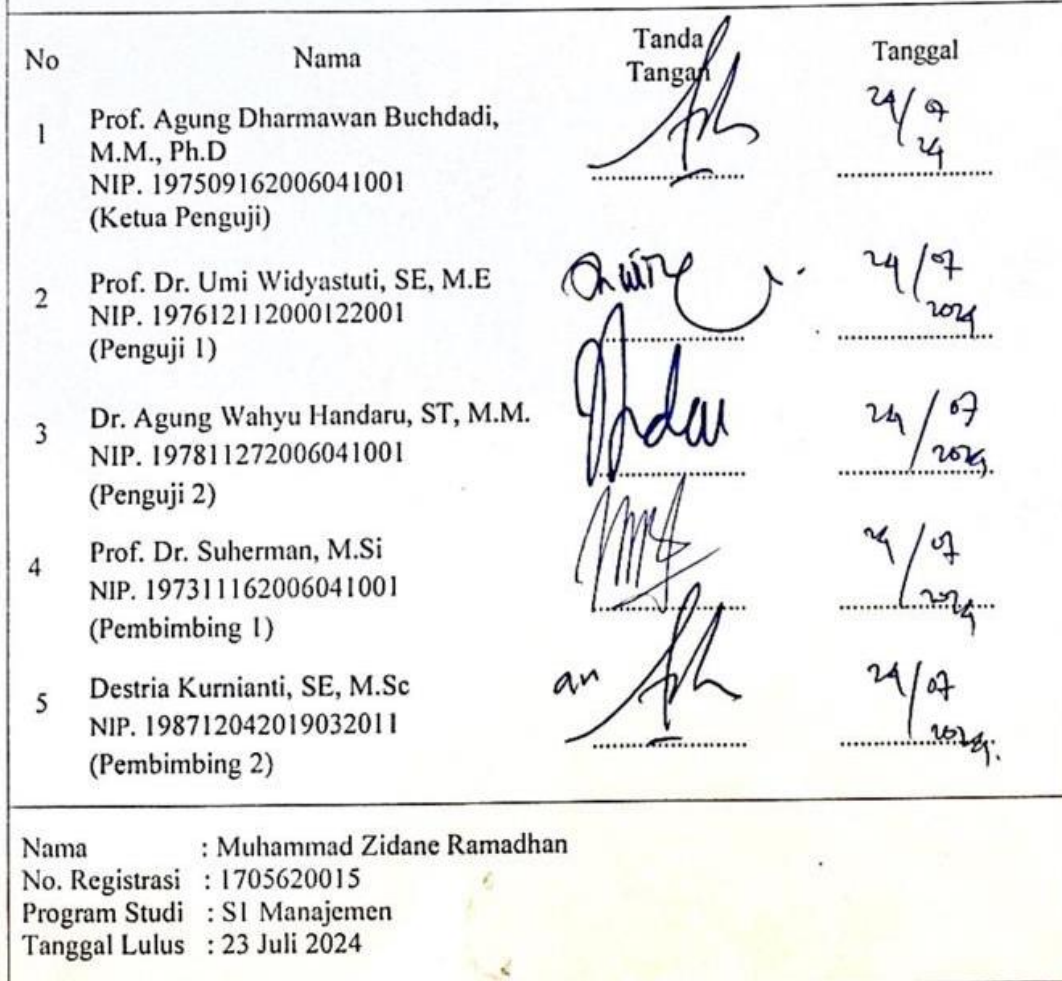 No Nama Tanda Tangan Tanggal
1 Prof. Agung Dharmawan Buchdadi,
M.M., Ph.D
NIP. 197509162006041001
(Ketua Penguji)
24/07
24
2 Prof. Dr. Umi Widyastuti, SE, M.E
NIP. 197612112000122001
(Penguji 1)
24/07
2024
3 Dr. Agung Wahyu Handaru, ST, M.M.
NIP. 197811272006041001
(Penguji 2)
24/07
2024
4 Prof. Dr. Suherman, M.Si
NIP. 197311162006041001
(Pembimbing 1)
24/07
2024
5 Destria Kurnianti, SE, M.Sc
NIP. 198712042019032011
(Pembimbing 2)
an
24/07
2024.
Nama : Muhammad Zidane Ramadhan
No. Registrasi : 1705620015
Program Studi : S1 Manajemen
Tanggal Lulus : 23 Juli 2024